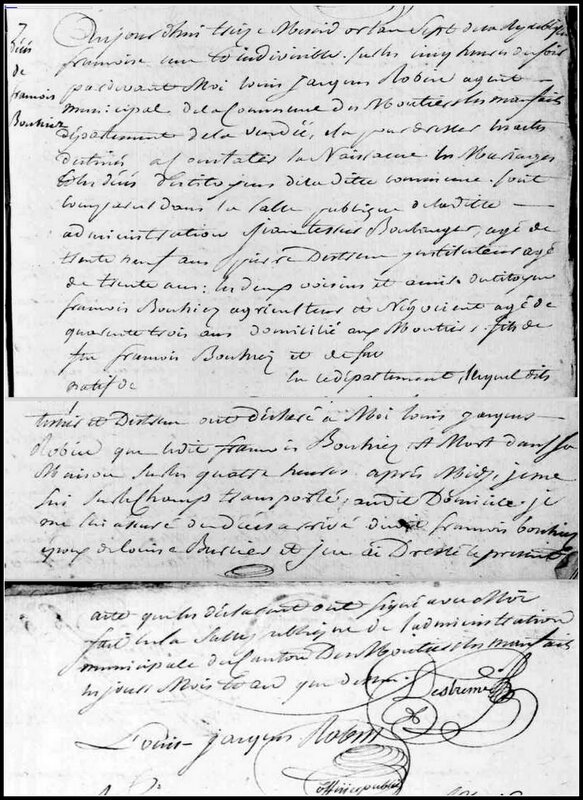 7
décès
de
francois
Bouhiez
Aujourdhui treize Messidor lan Sept de la République
francoise une et indivisible. sur les cinq heures du soir
pardevant Moi louis jacques Robin agent
municipal de la Commune des Moutiers les maufaits
département de la vendée, élu pour dresser les actes
destinés a constater la Naissance les Mariages
et les décès des citoyens de la ditte commune. sont
comparus dans la Salle publique de la ditte
administration jean tessier Boulanger, agé de
trente neuf ans pierre Distem instituteur agé
de trente ans; les deux voisins et amis du citoyen
francois Bouhiez agriculteur et Négociant agé de
quarante trois ans domicilié aux Moutiers. fils de
feu francois Bouhiez et de feu
natif de en ce département, lequel dits
tessier et Distem ont déclaré à Moi louis jacques
Robin que ledit francois Bouhiez est Mort dans sa
Maison sur les quatre heures après Midi, je me
suis sur le Champ transporté, audit Domicile. je
me suis assuré du décès arrivé dudit francois bouhiez
epoux de louise Burcier et j'en ai Dressé le présent
acte que les déclarant ont signé avec Moi
fait en la Salle publique de l'administration
municipale du Canton Des Moutiers les maufaits
les jours Mois et an que dessus.
Louis jacques Robin
officier public